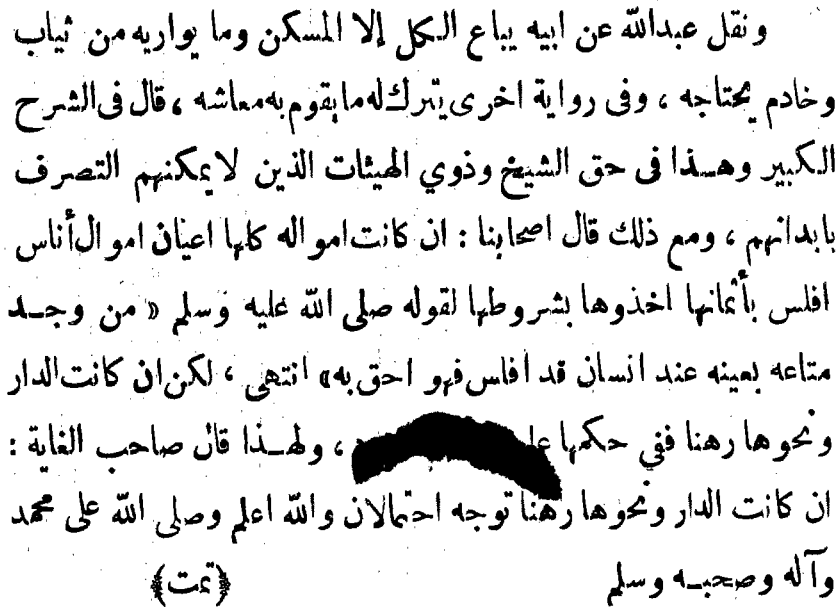 ونقل عبدالله عن ابيه يباع الكل إلا المسكن وما يواريه من ثياب
وخادم يحتاجه ، وفى رواية اخرى يترك له ما يقوم به معاشه ، قال فى الشرح
الكبير وهـذا فى حق الشيخ وذوي الهيئات الذين لا يمكنهم التصرف
بابدانهم ، ومع ذلك قال اصحابنا : ان كانت امواله كلها اعيان اموال أناس
افلس بأثمانها اخذوها بشروطها لقوله صلى الله عليه وسلم « من وجـد
متاعه بعينه عند انسان قد افلس فهو احق به» انتهى ، لكن ان كانت الدار
ونحوها رهنا ففي حكمها ، ولهـذا قال صاحب الغاية :
ان كانت الدار ونحوها رهنا توجه احتمالان والله اعلم وصلى الله على محمد
وآله وصحبـه وسلم ﴿تمت﴾